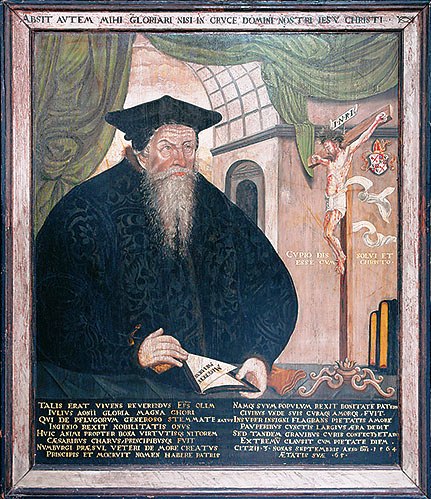 ABSIT AVTEM MIHI GLORIARI NISI IN CRVCE DOMINI NOSTRI IESV CHRISTI
INRI
CVPIO DIS SOLVI ET
ESSE CVM CHRISTO
TALIS ERAT VIVENS REVERENDVS EPS OLIM
IVLIVS AONII GLORIA MAGNA CHORI
QVI DE PFLVGORVM GENEROSO STEMMATE
INGENIO REXIT NOBILITATIS ONVS
HVIC ANIMI PROPTER DOTES VIRTVTISQ NITOREM
CAESARIBVS CHARVS PRINCIPIBVSQ FVIT
NVMBVRGI PRAESVL VETERI DE MORE CREATVS
PRINCIPIS ET MERVIT NOMEN HABERE PATRIS
NAMQ SVVM POPVLVM REXIT BONITATE
CIVIBVS VNDE SVIS CVRAQ AMORQ FVIT
INSVPER INSIGNI FLAGRANS PIETATIS AMORE
PAVPERIBVS CVNCTIS LARGITER AERA DEDIT
SED TANDEM GRAVIBVS CVRIS CONFECTVS
EXTREMV CLAVSIT CVM PIETATE DIEM
CITZII 3 NONAS SEPTEMBRIS 1564
AETATIS SVAE 65